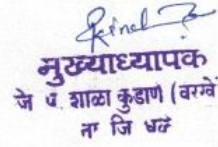 मुख्याध्यापक
जे प. शाळा कुडाणे (वरखे
ता जि धळे